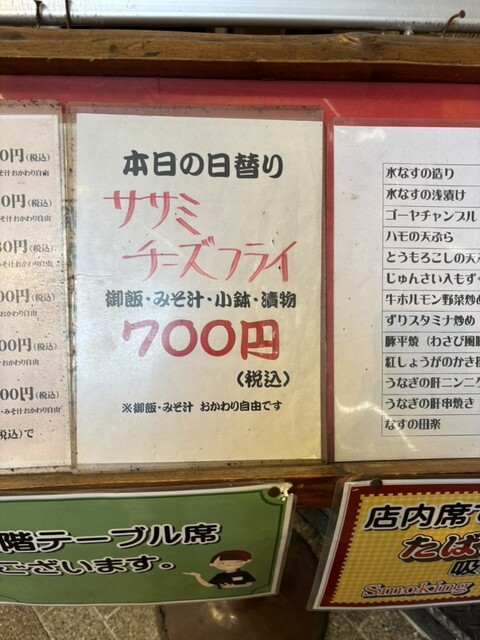 0円(税込)
そ汁おかわり自由
0円(税込)
汁おかわり自由
80円(税込)
そ汁おかわり自由
00円(税込)
おかわり自由
00円(税込)
おかわり自由
00円(税込)
みそ汁おかわり自由
税込)で
本日の日替り
ササミ
チーズフライ
御飯・みそ汁・小鉢・漬物
700円
(税込)
※御飯・みそ汁 おかわり自由です
水なすの造り
水なすの浅漬け
ゴーヤチャンプル
ハモの天ぷら
とうもろこしの天
じゅんさい入もず
牛ホルモン野菜炒め
ずりスタミナ炒め
豚平焼(わさび風
紅しょうがのかき揚
うなぎの肝ニンニク
うなぎの肝串焼き
なすの田楽
階テーブル席
ございます。
店内席で
たば
吸
Smoking